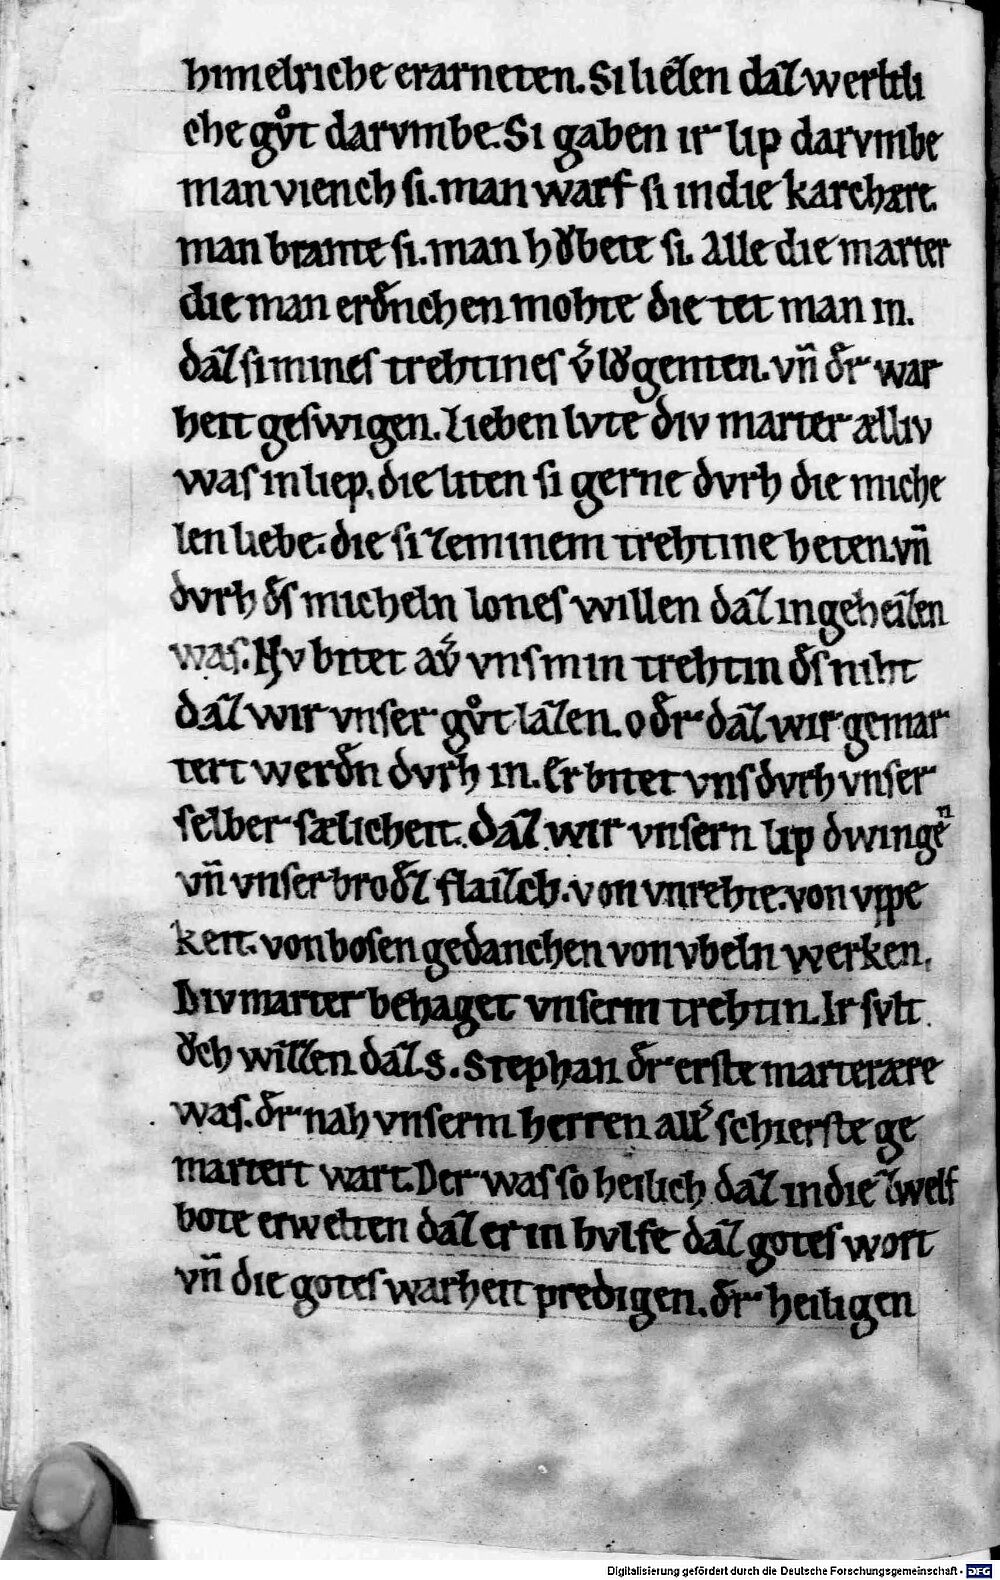 himelriche erarneten. Si liezen daz werltli
che gůt darvmbe. Si gaben ir lip darvmbe
man viench si. man warf si in die karchære.
man brante si. man hȣbete si. Alle die marter
die man erdēnchen mohte die tet man in.
daz si mines trehtines v̓lȣgenten. vn̄ d̓r war
heit geswigen. Lieben lvte div marter ælliv
was in liep. die liten si gerne dvrh die miche
len liebe. die si ze minem trehtine heten. vn̄
dvrh d̓s micheln lones willen daz in geheizen
was. Nv bitet av̓ vns min trehtin d̓s niht
daz wir vnser gůt lazen. od̓r daz wir gemar
tert werd̓n dvrh in. Er bitet vns dvrh vnser
selber sælicheit. daz wir vnsern lip dwingeⁿ
vn̄ vnser brod̓z flaisch. von vnrehte. von vppe
keit. von bosen gedanchen von vbeln werken.
Div marter behaget vnserm trehtin. Ir svlt
ȣch wizzen daz S. Stephan d̓r erste marterære
was. d̓r nah vnserm herren all̓ schierste ge
martert wart. Der was so heilich daz in die zwelf
bote erwelten daz er in hvlfe daz gotes wort
vn̄ die gotes warheit predigen. d̓r heiligen
Digitalisierung gefördert durch die Deutsche Forschungsgemeinschaft - DFG